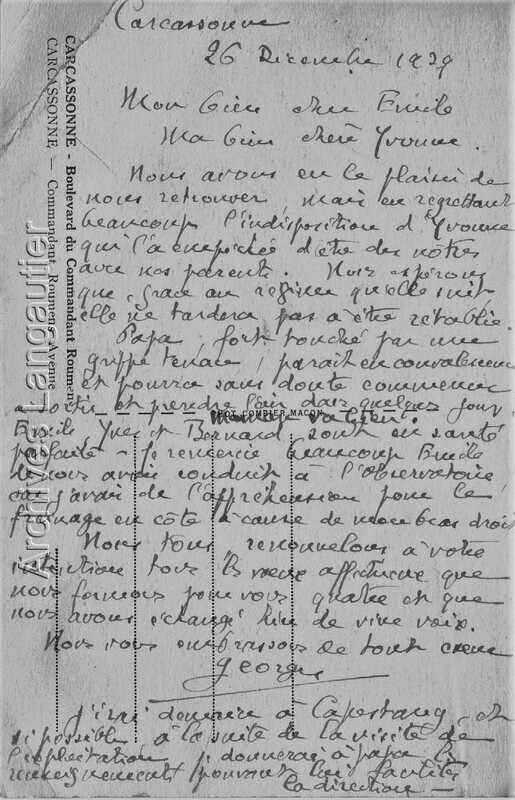 Carcassonne
26 Décembre 1929
Mon bien cher Emile
Ma bien chère Yvonne.
Nous avons eu le plaisir de
nous retrouver, mais en regrettant
beaucoup l'indisposition d'Yvonne
qui l'a empêchée d'être des nôtres
avec nos parents. Nous espérons
que, grace au régime qu'elle suit
elle ne tardera pas à être rétablie.
Papa, fort touché par une
grippe tenace, parait en convalescence
et pourra sans doute commencer
à sortir et prendre l'air dans quelques jours
maman va bien.
Emile, Yves et Bernard sont en santé
parfaite - Je remercie beaucoup Emile
de nous avoir conduit à l'Observatoire,
car j'avais de l'appréhension pour le
freinage en côte à cause de mon bras droit
Nous tous, renouvelons à votre
intention tous les voeux affectueux que
nous formons pour vous quatre et que
nous avons échangé hier de vive voix.
Nous vous embrassons de tout coeur
Georges
J'irai demain à Capestang, et
si possible à la suite de la visite de
l'exploitation, je donnerai à papa les
renseignements pouvant lui faciliter
la direction -
CARCASSONNE - Boulevard du Commandant Roumens
CARCASSONNE. - Commandant Roumens Avenue
PHOT COMBIER MACON
Archives Langautier